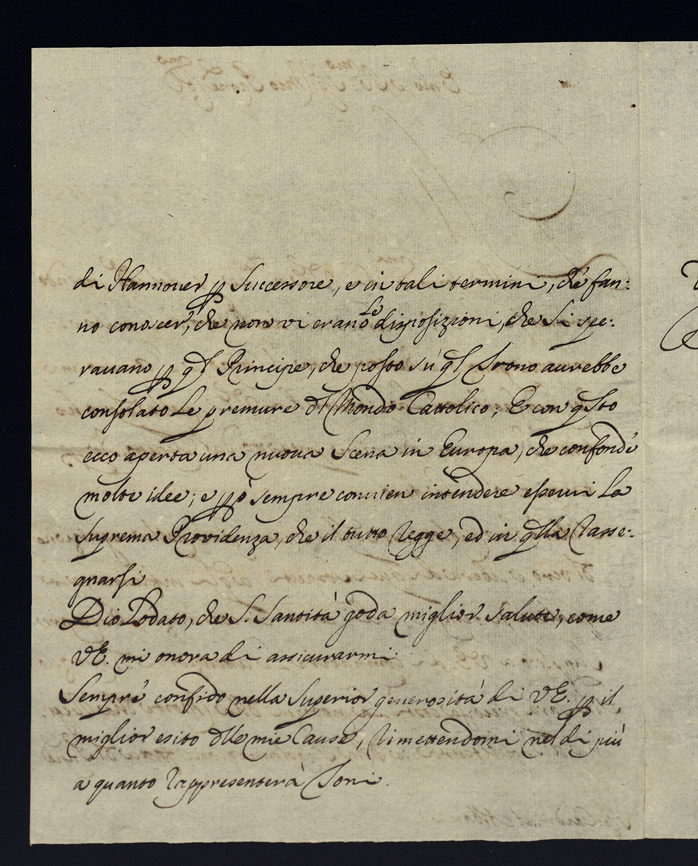 di Hannover p Successore, e in tali termini, che fan:
no conoscer, che non vi erano le disposizioni, che si spe:
ravano p qsto Principe, che posto su qsto Trono avrebbe
consolato le premure del Mondo Cattolico; E con qsto
ecco aperta una nuova Scena in Europa, che confonde
molte idee; e pò sempre convien intendere esservi la
suprema Providenza, che il tutto regge, ed in qlla rasse:
gnarsi
Dio Lodato, che S. Santità goda miglior salute, come
VE. mi onora di assicurarmi
Sempre confido nella superior generosità di VE. p il
miglior esito dlle mie Cause, rimettendomi nel di più
a quanto rappresenterà Toni.